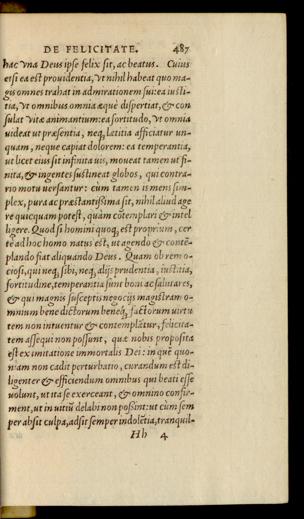 DE FELICITATE. 487
hac vna Deus ipse felix sit, ac beatus. Cuius
etsi ea est prouidentia, vt nihil habeat quo ma-
gis omnes trahat in admirationem sui: ea iusti-
tia, vt omnibus omnia æquè dispertiat, & con
sulat vitæ animantium: ea fortitudo, vt omnia
uideat ut præsentia, neq; lætitia afficiatur un-
quam, neque capiat dolorem: ea temperantia,
ut licet eius sit infinita uis, moueat tamen ut fi-
nita, & ingentes sustineat globos, qui contra-
rio motu uersantur: cùm tamen is mens sim-
plex, pura ac præstantissima sit, nihil aliud age
re quicquam potest, quàm cõtemplari & intel
ligere. Quod si homini quoq; est proprium, cer
te ad hoc homo natus est, ut agendo & contẽ-
plando fiat aliquando Deus. Quam ob rem o-
ciosi, qui neq; sibi, neq; alijs prudentia, iustitia,
fortitudine, temperantia sunt boni ac salutares,
& qui magnis susceptis negocijs magistram o-
mnium bene dictorum beneq́; factorum uirtu
tem non intuentur & contemplãtur, felicita-
tem assequi non possunt, quæ nobis proposita
est ex imitatione immortalis Dei: in quẽ quo-
niam non cadit perturbatio, curandum est di-
ligenter & efficiendum omnibus qui beati esse
uolunt, ut ita se exerceant, & omnino confir-
ment, ut in uitiũ delabi non possint: ut cùm sem
per absit culpa, adsit semper indolẽtia, tranquil-
Hh 4